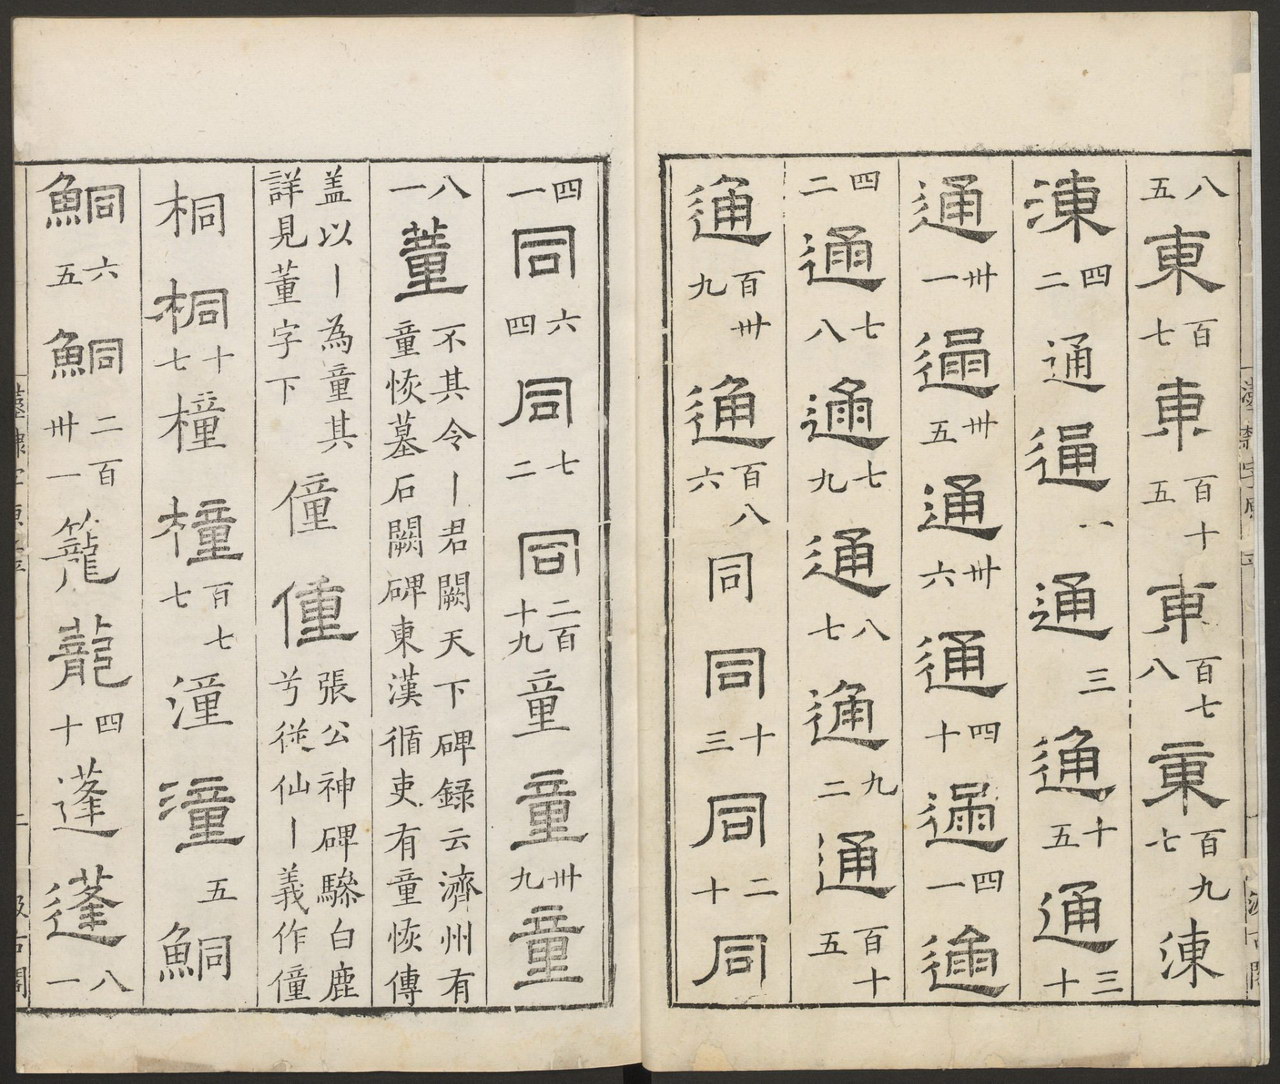 八五東百七東百十五東百七八東百九七涷
涷四二通通八通三通十五通三十
通卅一通卅五通卅六通四十通四一通
四二通七八通七九通八七通九二通百十五
通百卅九通百八六同同十三同二十同
四一同六四同七二同二百十九童童卅九童
八一董不其令丨君闕天下碑録云濟州有童恢墓石闕碑東漢循吏有童恢傳
盖以丨為童其詳見董字下僮僮張公神碑驂白鹿兮從仙丨義作僮
桐桐十七橦橦百七七潼潼五鮦
鮦六五鮦二百卅一籠蘢四十蓬蓬八一
二
汲古閣